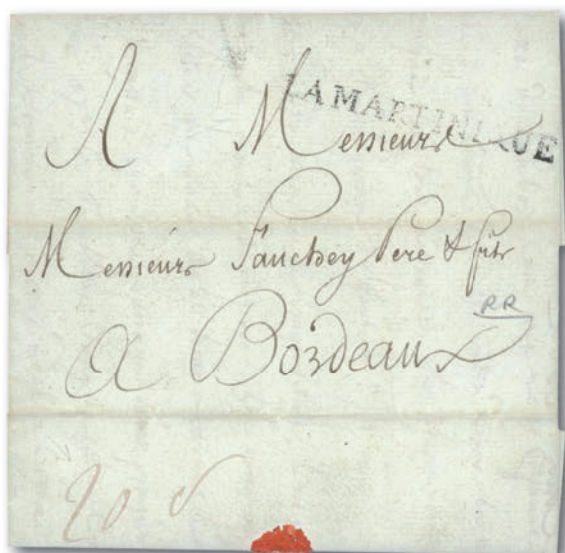 LA MARTINIQUE
A Messieurs
Messieurs Fauchey Pere & fils
RR
a Bordeaux
20